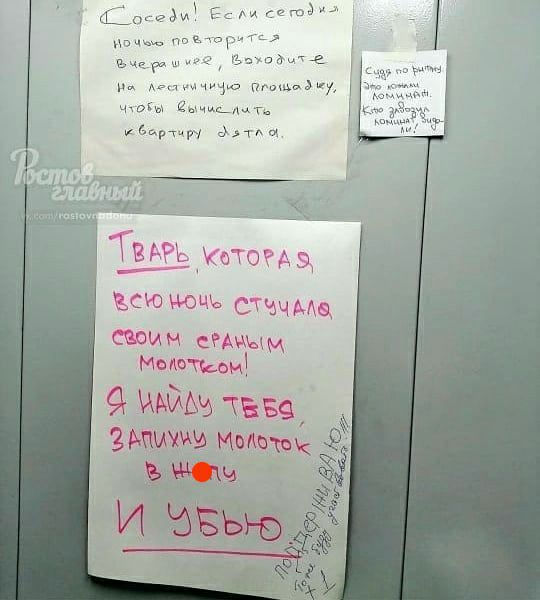 Соседи! Если сегодня
ночью повторится
вчерашнее, выходите
на лестничную площадку,
чтобы вычислить
квартиру дятла.
Судя по ритму,
это ложили
ломинат.
Кто завозил
ломинат, видели!
Ростов
главный
vk.com/rostovnadonu
Тварь, которая
всю ночь стучала
своим сраным
молотком!
Я найду тебя,
запихну молоток
в ж пу
и убью
Поддерживаю!!!
Тоже буду
+1